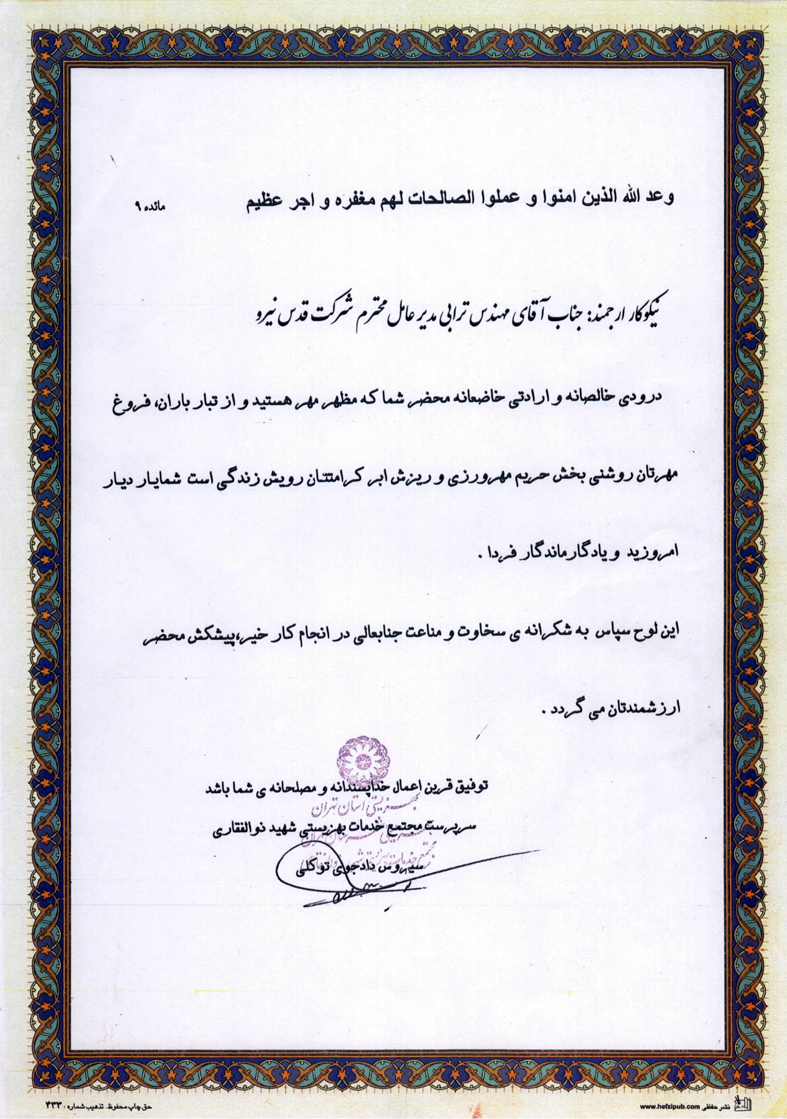 وعد الله الذین امنوا و عملوا الصالحات لهم مغفره و اجر عظیم مائده ۹
نیکوکار ارجمند: جناب آقای مهندس ترابی مدیر عامل محترم شرکت قدس نیرو
درودی خالصانه و ارادتی خاضعانه محضر شما که مظهر مهر هستید و از تبار باران، فروغ
مهرتان روشنی بخش حریم مهرورزی و ریزش ابر کرامتتان رویش زندگی است شمایار دیار
امروزید و یادگار ماندگار فردا .
این لوح سپاس به شکرانه ی سخاوت و مناعت جنابعالی در انجام کار خیر،پیشکش محضر
ارزشمندتان می گردد .
توفیق قرین اعمال خداپسندانه و مصلحانه ی شما باشد
بهزیستی استان تهران
سرپرست مجتمع خدمات بهزیستی شهید ذوالفقاری
سیروس دادجوی توکلی
نشر حفظی www.hefzipub.com
حق چاپ محفوظ. تذهیب شماره : ۴۳۳